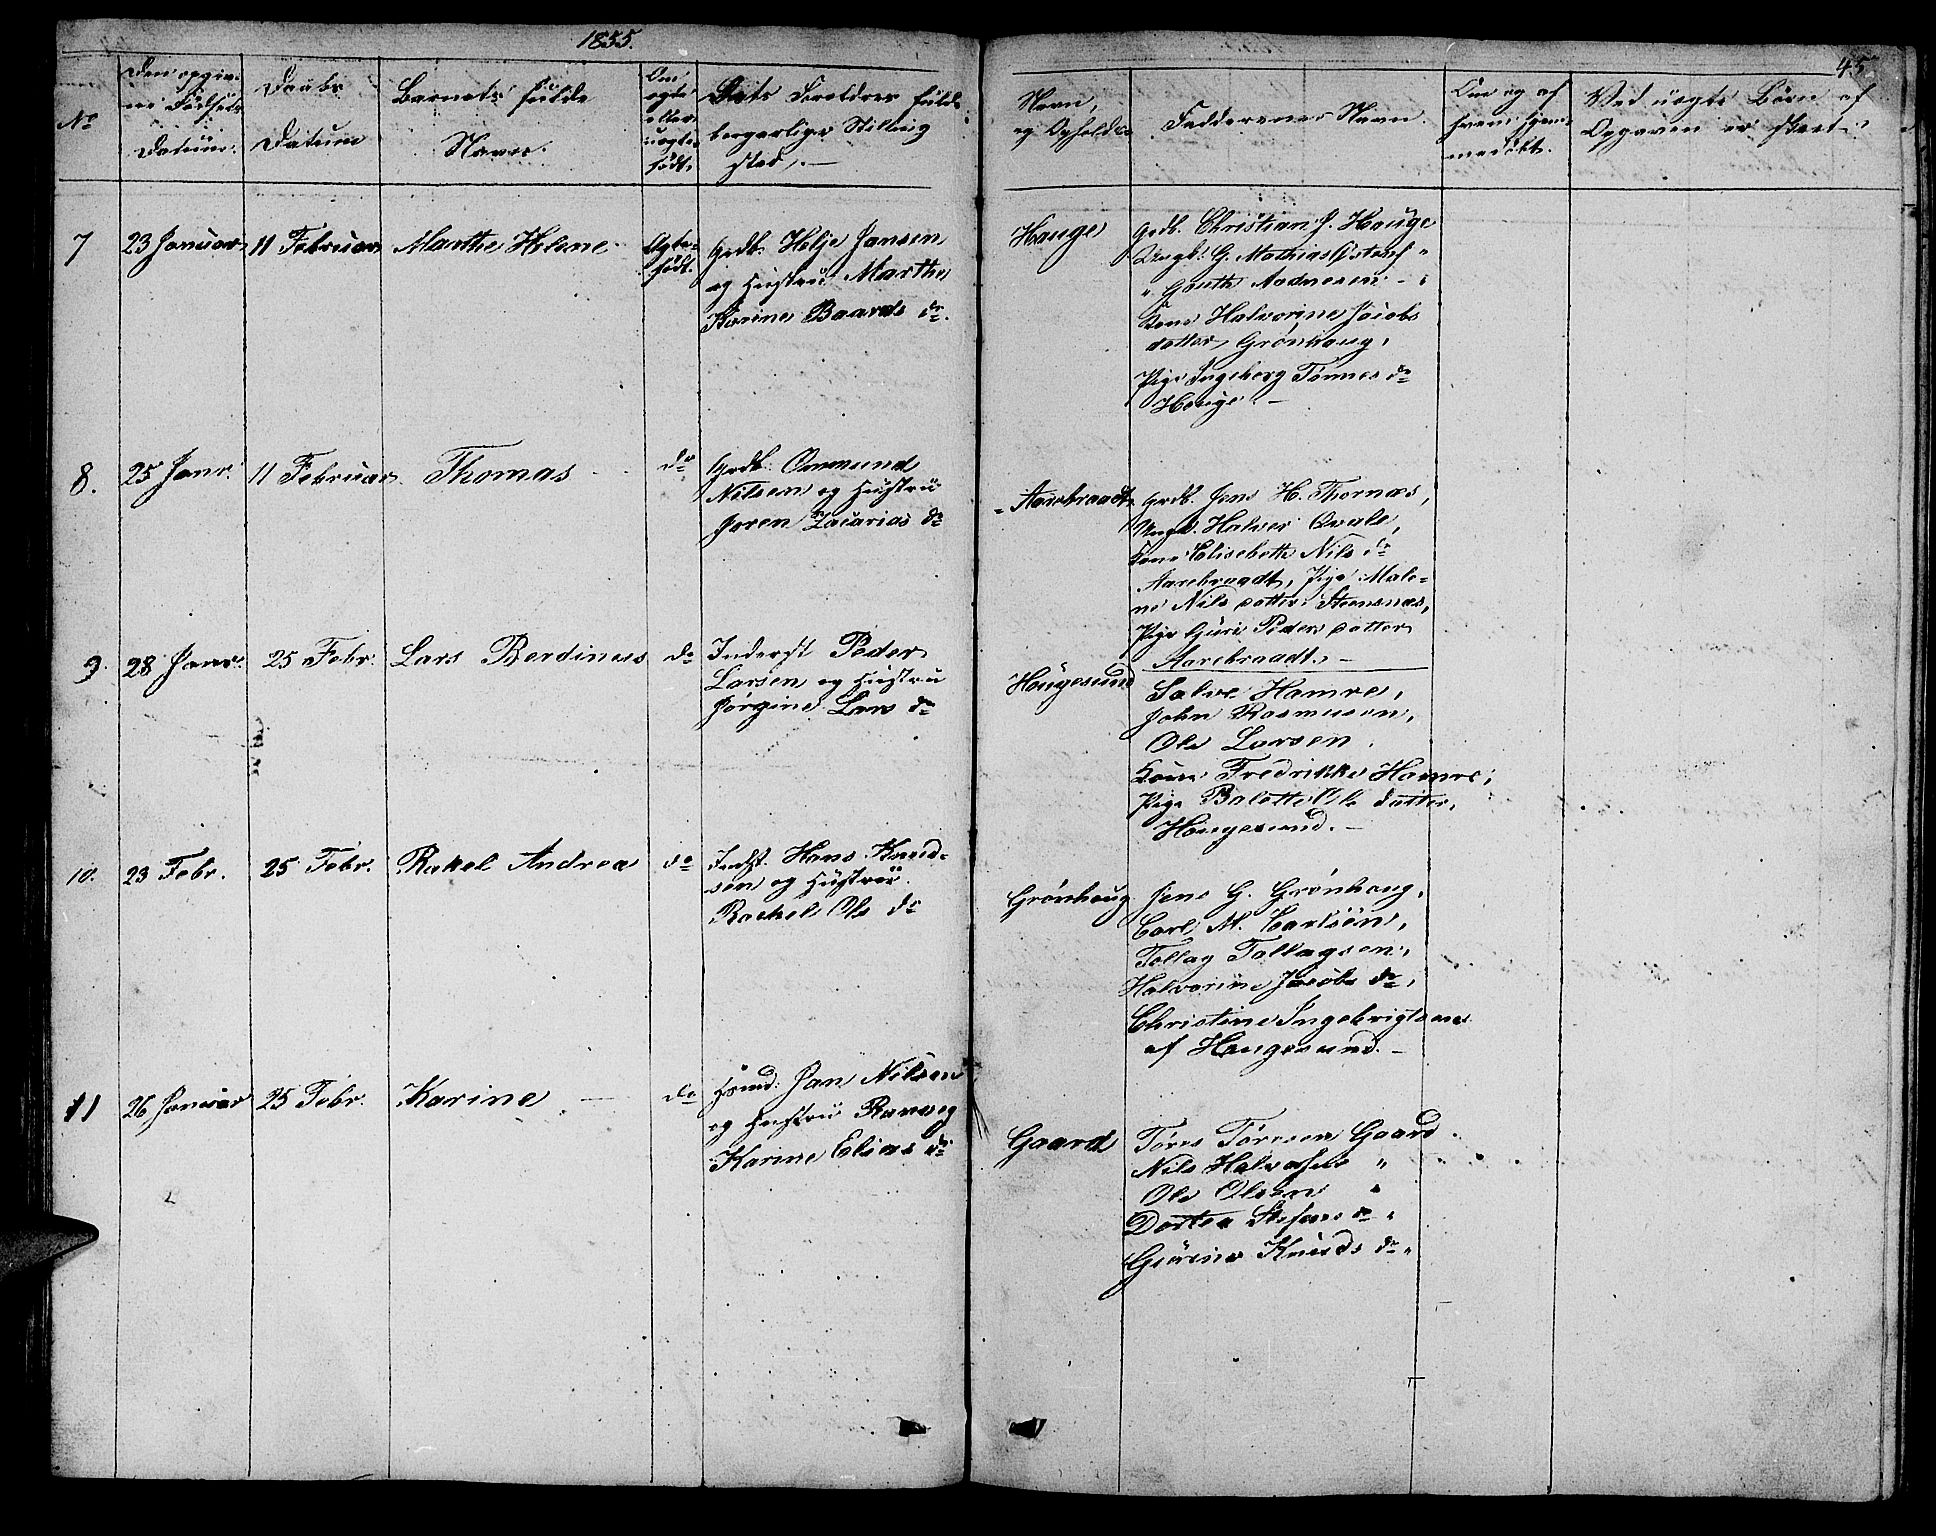 1855.
45
No
Den opgiv-
ne Fødsels
Datum.
Daabs
Datum
Barnets fulde
Navn.
Om
ægte
eller
uægte
født.
Dets Foreldres fulde
borgerlige Stilling
sted.
Navn,
og Opholds
Faddernes Navn.
Om og af
hvem hjem-
medøbt.
Ved uægte Børn af
Opgaven er skeet
7
23 Januar
11 Februar
Marthe Helene
Ægte-
født.
Grdb. Helje Jansen
og Hustru Marthe
Karine Baards dr.
Hauge
Grdb. Christian J. Hauge
Ungk. G. Mathias
" Gouthe Andresen
Kone Halvorine Jacobs
datter Grønhaug,
Pige Ingeborg Tønnes dr
Hauge
8.
25 Janr.
11 Februar
Thomas
do
Grdb. Ommund
Nilsen og Hustru
Joren Zacarias dr
Aarebraadt
Grdb. Jens H. Thornæs,
Ungk. Halver Qvale,
Kone Elisebeth Nils dr
Aarebraadt, Pige Male-
ne Nils datter Steensnæs,
Pige Guri Peders datter
Aarebraadt.
9.
28 Janr.
25 Febr.
Lars Berdines
do
Inderst Peder
Larsen og Hustru
Jørgine Lars dr
Hougesund
Salve Hamre,
John Rasmusen,
Ole Larsen.
Kone Fredrikke Hamre,
Pige Balette Ole datter,
Hougesund.
10.
23 Febr.
25 Febr.
Rakel Andrea
do
Indst. Hans Knud-
sen og Hustru
Rachel Ole dr
Grønhaug
Jens G. Grønhaug,
Carl M. Carlsen,
Tollag Tollagsen,
Halvorine Jacobs dr,
Christine Ingebrigtsen
af Haugesund.
11
26 Januar
25 Febr.
Karine
do
Huusmd: Jan Nilsen
og Hustru Rannveg
Karine Elias dr
Gaard
Tøres Tøresen Gaard
Nils Halvorsen "
Ole Olsen "
Dortea Stefans dr "
Gurine Knuds dr "